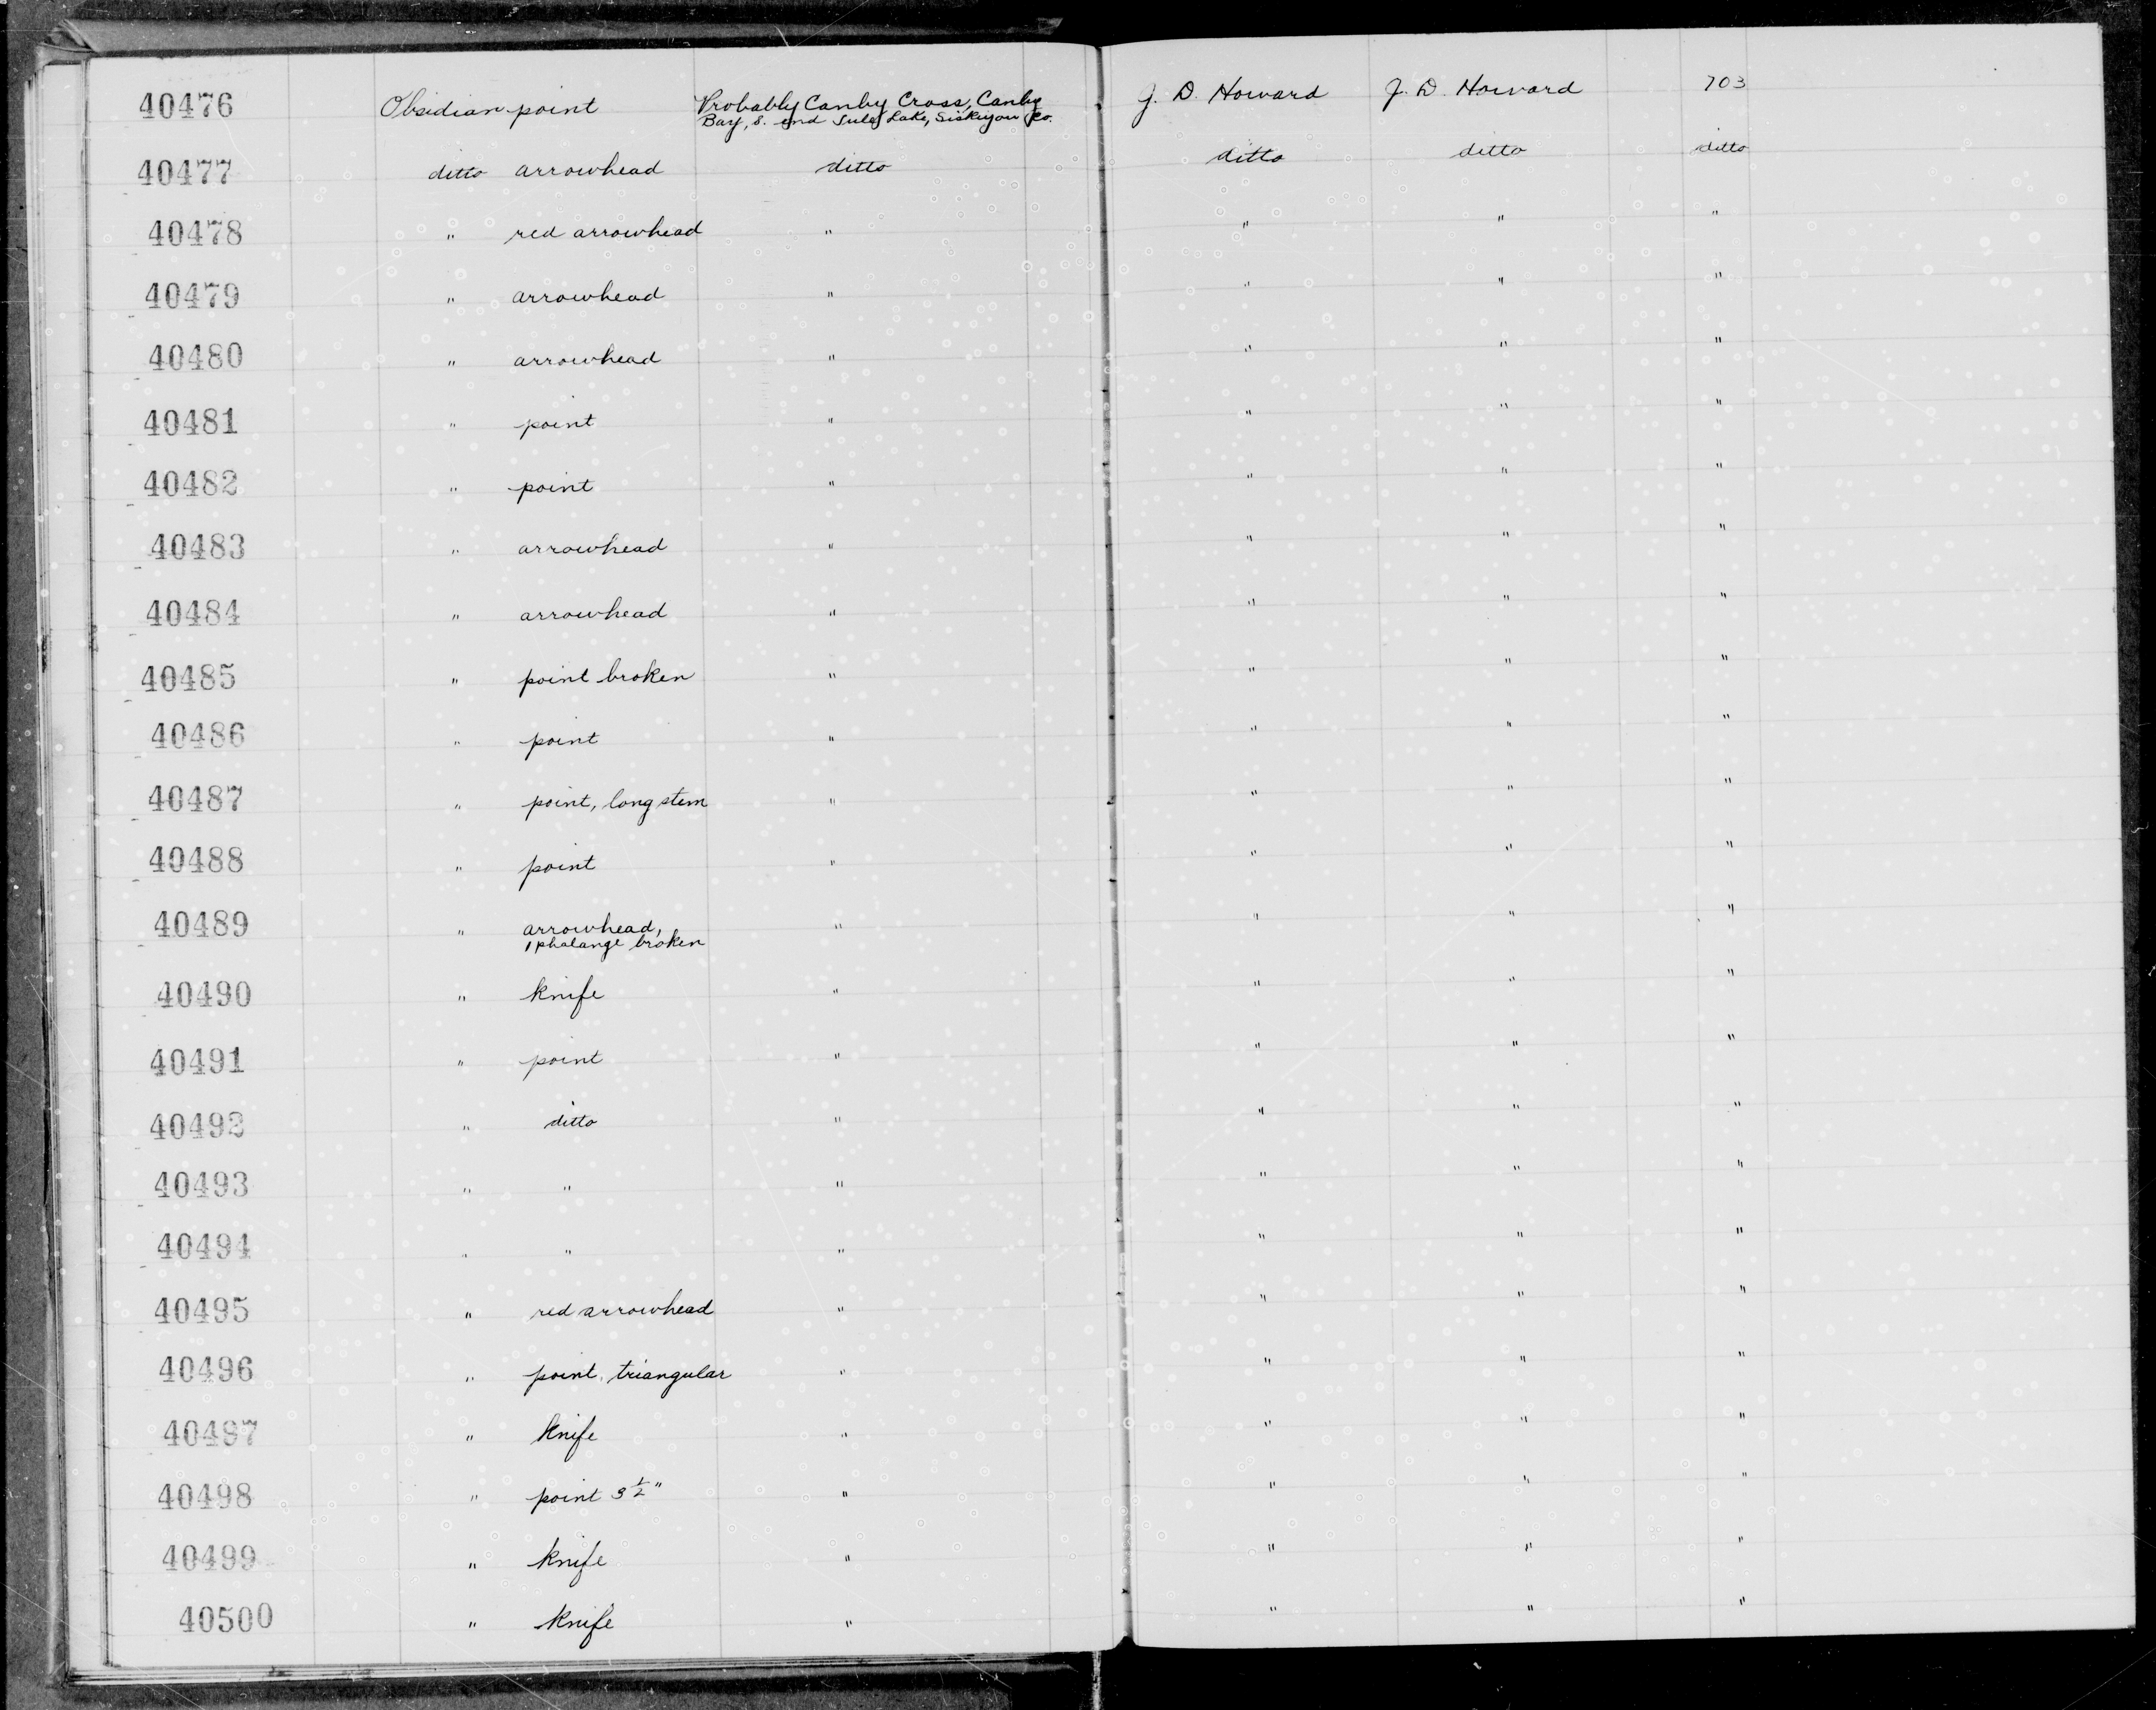 40476 Obsidian point Probably Canby Cross, Canby J. D. Howard J. D. Howard 703
Bay, S. end Tule Lake, Siskiyou Co.
40477 ditto arrowhead ditto ditto ditto ditto
40478 " red arrowhead " " " "
40479 " arrowhead " " " "
40480 " arrowhead " " " "
40481 " point " " " "
40482 " point " " " "
40483 " arrowhead " " " "
40484 " arrowhead " " " "
40485 " point broken " " " "
40486 " point " " " "
40487 " point, long stem " " " "
40488 " point " " " "
40489 " arrowhead, " " " "
1 phalange broken
40490 " knife " " " "
40491 " point " " " "
40492 " ditto " " " "
40493 " " " " " "
40494 " " " " " "
40495 " red arrowhead " " " "
40496 " point, triangular " " " "
40497 " knife " " " "
40498 " point 3 1/2" " " " "
40499 " knife " " " "
40500 " knife " " " "